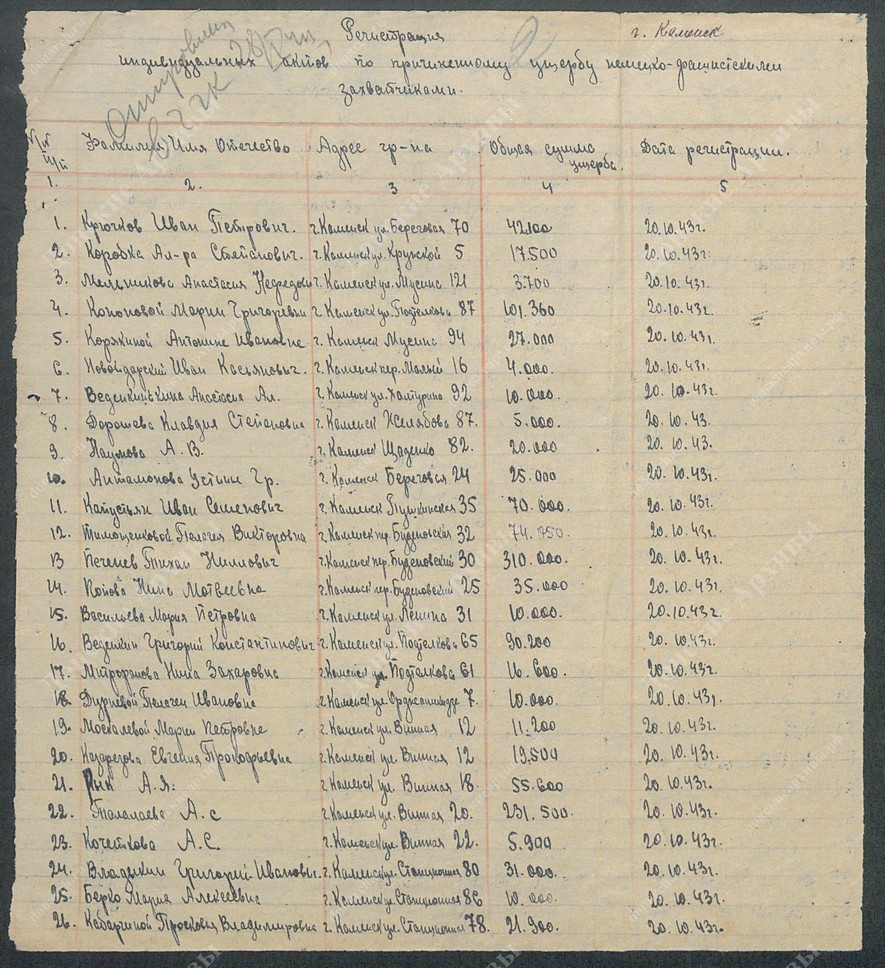 г. Каменск
Регистрация
индивидуальных актов по причиненному ущербу немецко-фашистскими
захватчиками.
№№ п/п Фамилия Имя Отчество Адрес гр-на Общая сумма ущерба. Дата регистрации.
1. 2. 3 4 5
1. Крючков Иван Петрович. г. Каменск ул. Береговая 70 42.100 20.10.43г.
2. Коробка Ал-ра Степанович. г. Каменск ул. 5 17.500 20.10.43г.
3. Мельникова Анастасия г. Каменск ул. Мусина 121 3.700 20.10.43г.
4. Кононовой Марии Григоревни г. Каменск ул. Подтелкова 87 101.360 20.10.43г.
5. Корякиной Антонине Ивановне г. Каменск Мусина 94 27.000 20.10.43г.
6. Иван Касьянович. г. Каменск пер. Малый 16 4.000. 20.10.43г.
7. Анастасия Ал. г. Каменск ул. Халтурина 92 10.000. 20.10.43г.
8. Дорошева Клавдия Степановна г. Каменск Желябова 87. 5.000. 20.10.43.
9. Наумова А. В. г. Каменск Щаденко 82. 20.000 20.10.43.
10. Антамонова Устинья Гр. г. Каменск Береговая 24 25.000 20.10.43г.
11. Капустьян Иван Семенович г. Каменск Пушкинская 35 70.000. 20.10.43г.
12. Тимощенковой Пелагея Викторовна г. Каменск пер. Буденовский 32 20.10.43г.
13 Печенев Тихан Нилович г. Каменск пер. Буденовский 30 310.000. 20.10.43г.
14. Попова Нина Матвеевна г. Каменск пер. Буденовский 25 35.000 20.10.43г.
15. Васильева Мария Петровна г. Каменск ул. Ленина 31 10.000. 20.10.43г.
16. Веденкин Григорий Константинович г. Каменск ул. Подтелкова 65 90.200 20.10.43г.
17. Митрофанова Нина Захаровна г. Каменск ул. Подтелкова 61 16.600. 20.10.43г.
18. Пелагеи Ивановне г. Каменск ул. Орджоникидзе 7. 10.000. 20.10.43г.
19. Москалевой Марии Петровне г. Каменск ул. Винная 12 11.200 20.10.43г.
20. Евгения Прокофьевна г. Каменск ул. Винная 12 19.500 20.10.43г.
21. Рык А. Я. г. Каменск ул. Винная 18. 55.600 20.10.43г.
22. Талалаева А. С г. Каменск ул. Винная 20. 231.500. 20.10.43г.
23. Кочеткова А. С. г. Каменск ул. Винная 22. 5.900 20.10.43г.
24. Владыкин Григорий Иванович. г. Каменск ул. Станционная 80 31.000. 20.10.43г.
25. Берко Мария Алексеевна г. Каменск ул. Станционная 86 10.000. 20.10.43г.
26. Просковья Владимировна г. Каменск ул. Станционная 78. 21.900. 20.10.43г.